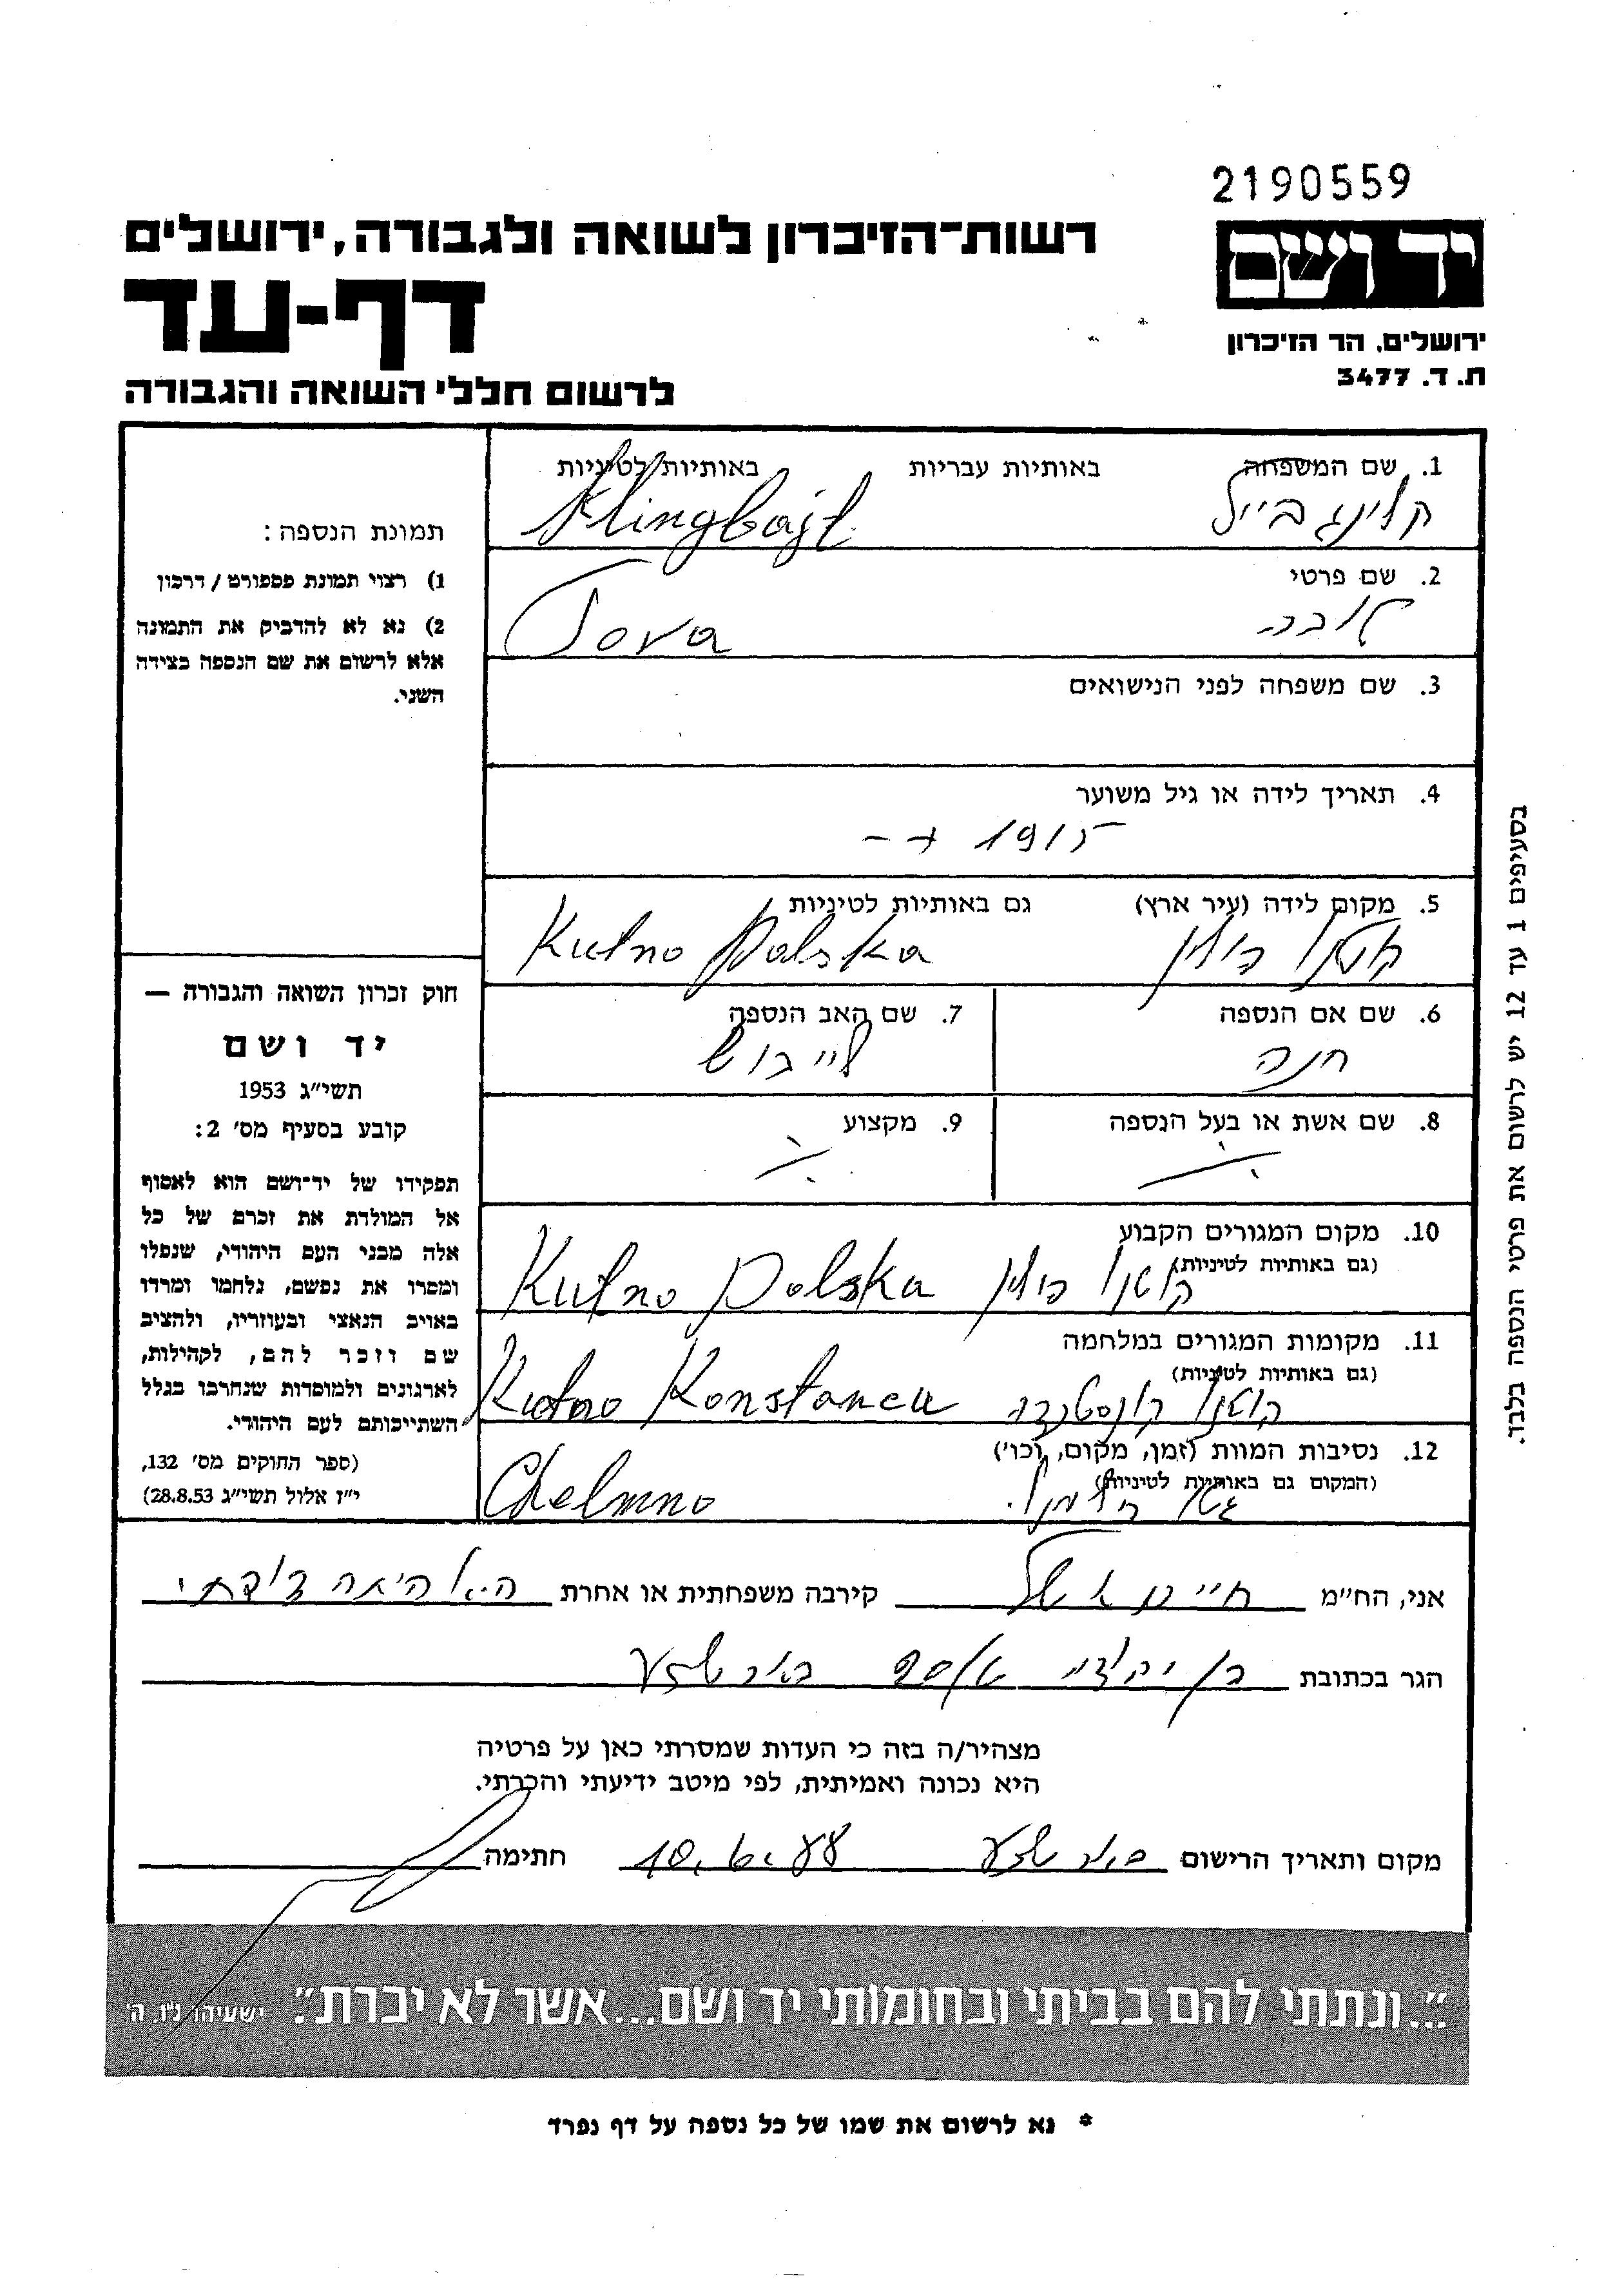 2190559
רשות־הזיכרון לשואה ולגבורה, ירושלים
יד ושם
דף-עד
ירושלים, הר הזיכרון
ת. ד. 3477
לרשום חללי השואה והגבורה
1. שם המשפחה באותיות עבריות באותיות לטיניות
קלינגבייל Klingbajl
2. שם פרטי
טובה Tova
3. שם משפחה לפני הנישואים
4. תאריך לידה או גיל משוער
1915
5. מקום לידה (עיר ארץ) גם באותיות לטיניות
קוטנו פולין Kutno Polska
6. שם אם הנספה
חנה
7. שם האב הנספה
לייבוש
8. שם אשת או בעל הנספה
9. מקצוע
10. מקום המגורים הקבוע
(גם באותיות לטיניות)
קוטנו פולין Kutno Polska
11. מקומות המגורים במלחמה
(גם באותיות לטיניות)
קוטנו קונסטנצה Kutno Konstanca
12. נסיבות המוות (זמן, מקום, וכו')
(המקום גם באותיות לטיניות)
Chelmno
תמונת הנספה:
1) רצוי תמונת פספורט / דרכון
2) נא לא להדביק את התמונה
אלא לרשום את שם הנספה בצידה
השני.
חוק זכרון השואה והגבורה —
יד ושם
תשי״ג 1953
קובע בסעיף מס׳ 2:
תפקידו של יד־ושם הוא לאסוף
אל המולדת את זכרם של כל
אלה מבני העם היהודי, שנפלו
ומסרו את נפשם, נלחמו ומרדו
באויב הנאצי ובעוזריו, ולהציב
שם וזכר להם, לקהילות,
לארגונים ולמוסדות שנחרבו בגלל
השתייכותם לעם היהודי.
(ספר החוקים מס׳ 132,
י״ז אלול תשי״ג 28.8.53)
בסעיפים 1 עד 12 יש לרשום את פרטי הנספה בלבד.
אני, הח״מ חיים קירבה משפחתית או אחרת
הגר בכתובת
מצהיר/ה בזה כי העדות שמסרתי כאן על פרטיה
היא נכונה ואמיתית, לפי מיטב ידיעתי והכרתי.
מקום ותאריך הרישום באר שבע 10.6.88 חתימה
״...ונתתי להם בביתי ובחומותי יד ושם...אשר לא יכרת״. ישעיהו נ״ו, ה׳
* נא לרשום את שמו של כל נספה על דף נפרד